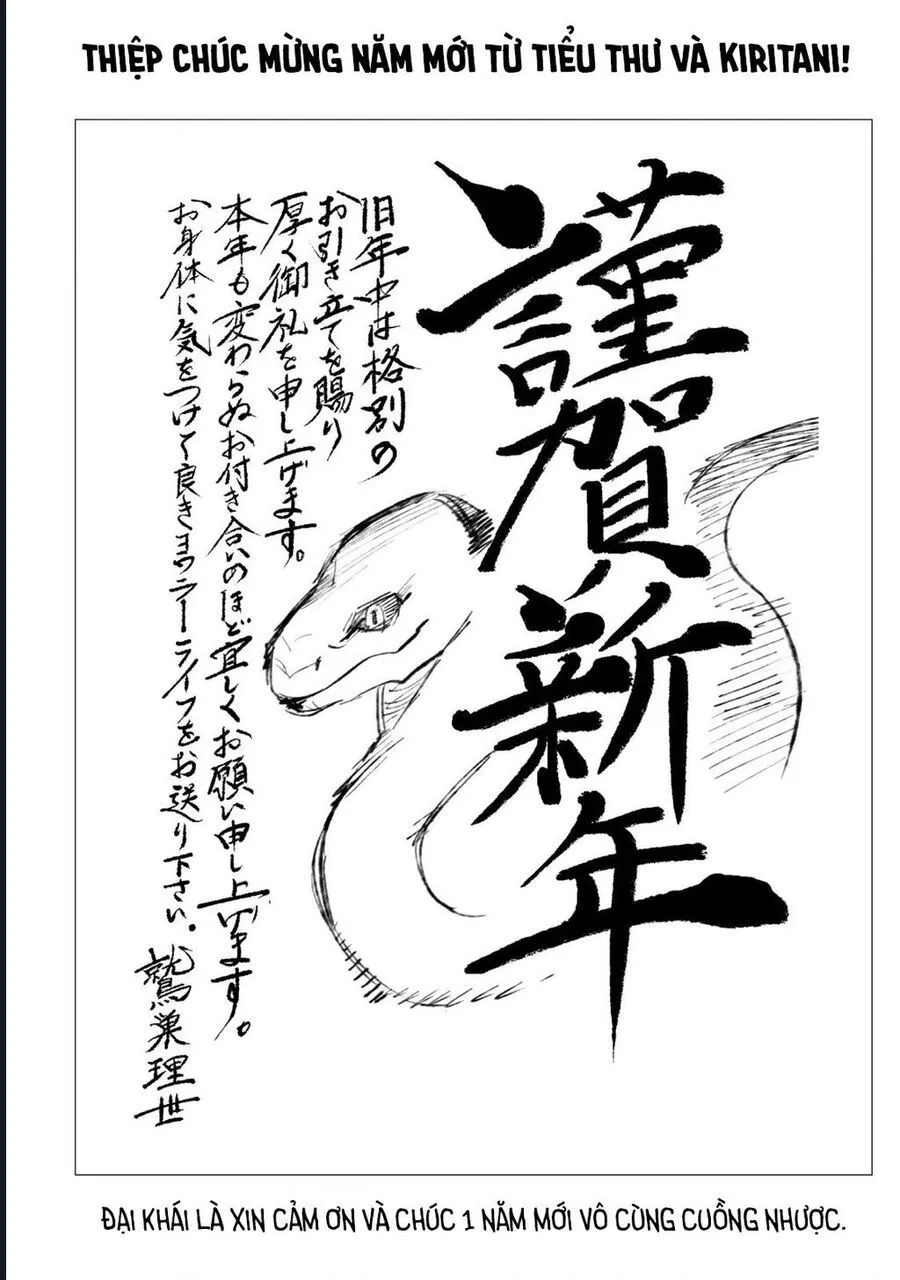 THIỆP CHÚC MỪNG NĂM MỚI TỪ TIỂU THƯ VÀ KIRITANI!
謹賀新年
旧年中は格別の
お引き立てを賜り
厚く御礼を申し上げます。
本年も変わらぬお付き合いのほど宜しくお願い申し上げます。
お身体に気をつけて良きヨワラーライフをお送り下さい。
鷲巣理世
ĐẠI KHÁI LÀ XIN CẢM ƠN VÀ CHÚC 1 NĂM MỚI VÔ CÙNG CUỒNG NHƯỢC.